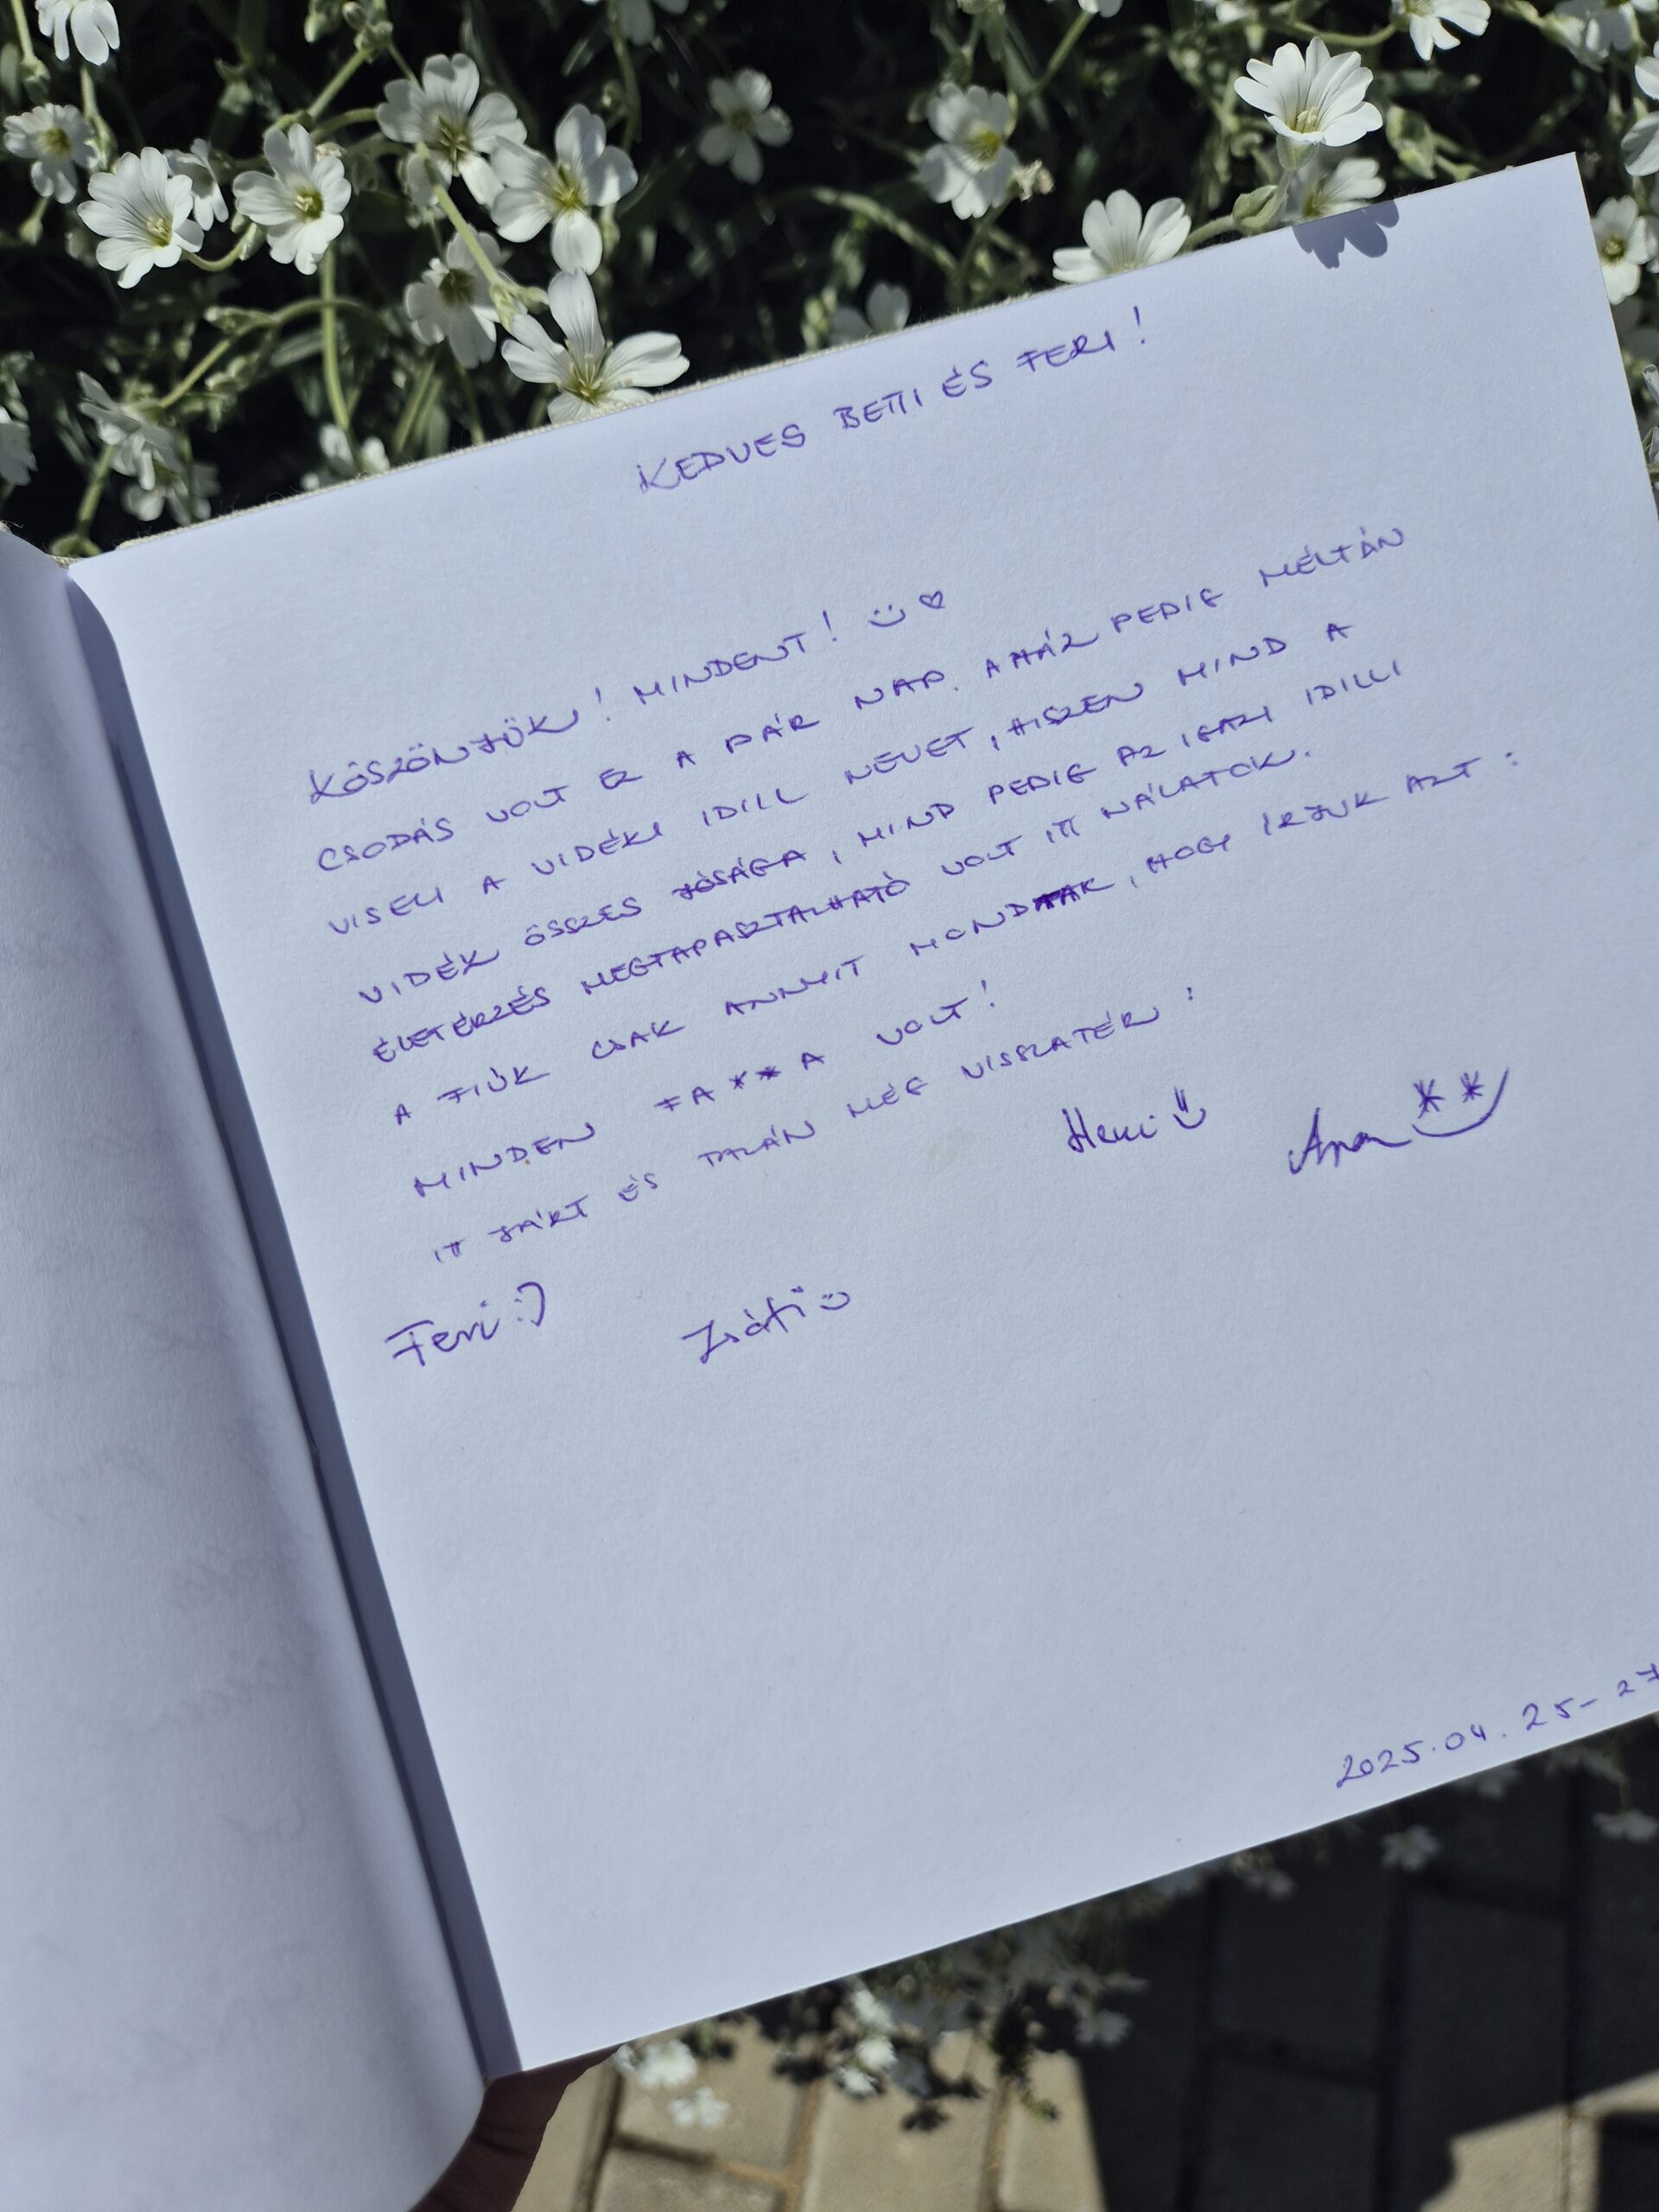 KEDVES BETTI ÉS FERI!
KÖSZÖNJÜK! MINDENT! ☺ ♡
CSODÁS VOLT EZ A PÁR NAP. A HÁZ PEDIG MÉLTÁN
VISELI A VIDÉKI IDILL NEVET, HISZEN MIND A
VIDÉK ÖSSZES JÓSÁGA, MIND PEDIG AZ IGAZI IDILLI
ÉLETÉRZÉS MEGTAPASZTALHATÓ VOLT ITT NÁLATOK.
A FIÚK CSAK ANNYIT MONDTAK, HOGY ÍRJUK AZT:
MINDEN FA**A VOLT!
ITT JÁRT ÉS TALÁN MÉG VISSZATÉR:
Heni ☺
Feri :)
2025.04.25-27